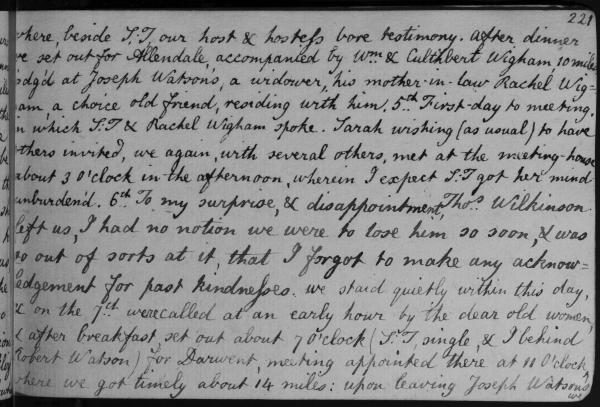 221
where, beside S:T, our host & hostess bore testimony. After dinner
we set out for Allendale, accompanied by Wm. & Cuthbert Wigham 10 miles
lodg'd at Joseph Watson's, a widower, his mother-in-law Rachel Wig=
ham, a choice old friend, residing with him. 5th. First-day to meeting.
in which S:T & Rachel Wigham spoke. Sarah wishing (as usual) to have
others invited, we again, with several others, met at the meeting-house
about 3 O'clock in the afternoon, wherein I expect S:T got her mind
unburden'd. 6th. To my surprise, & disappointment, Thos. Wilkinson
left us, I had no notion we were to lose him so soon, & was
so out of sorts at it, that I forgot to make any acknow=
ledgement for past kindnesses. we staid quietly within this day,
& on the 7th. were called at an early hour by the dear old women,
& after breakfast, set out about 7 O'clock (S:T, single, & I behind
Robert Watson) for Darwent, meeting appointed there at 11 O'clock,
where we got timely about 14 miles: upon leaving Joseph Watson's
we